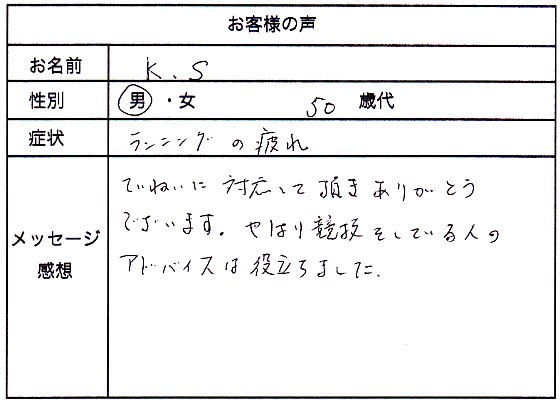 お客様の声
お名前 K.S
性別 男・女 50 歳代
症状 ランニングの疲れ
メッセージ
感想
ていねいに対応して頂きありがとう
ございます。やはり競技をしている人の
アドバイスは役立ちました.